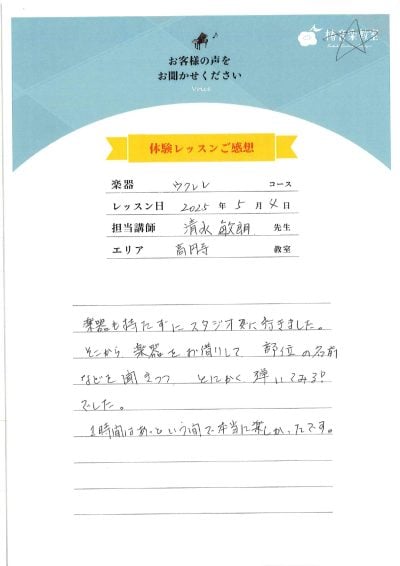 お客様の声を
お聞かせください
Voice
体験レッスンご感想
楽器 ウクレレ コース
レッスン日 2025 年 5 月 4 日
担当講師 清水 敏朗 先生
エリア 高円寺 教室
楽器も持たずにスタジオ見に行きました。
そこから楽器をお借りして 部位の名前
などを聞きつつ とにかく弾いてみる!
でした。
1時間はあっという間で本当に楽しかったです。